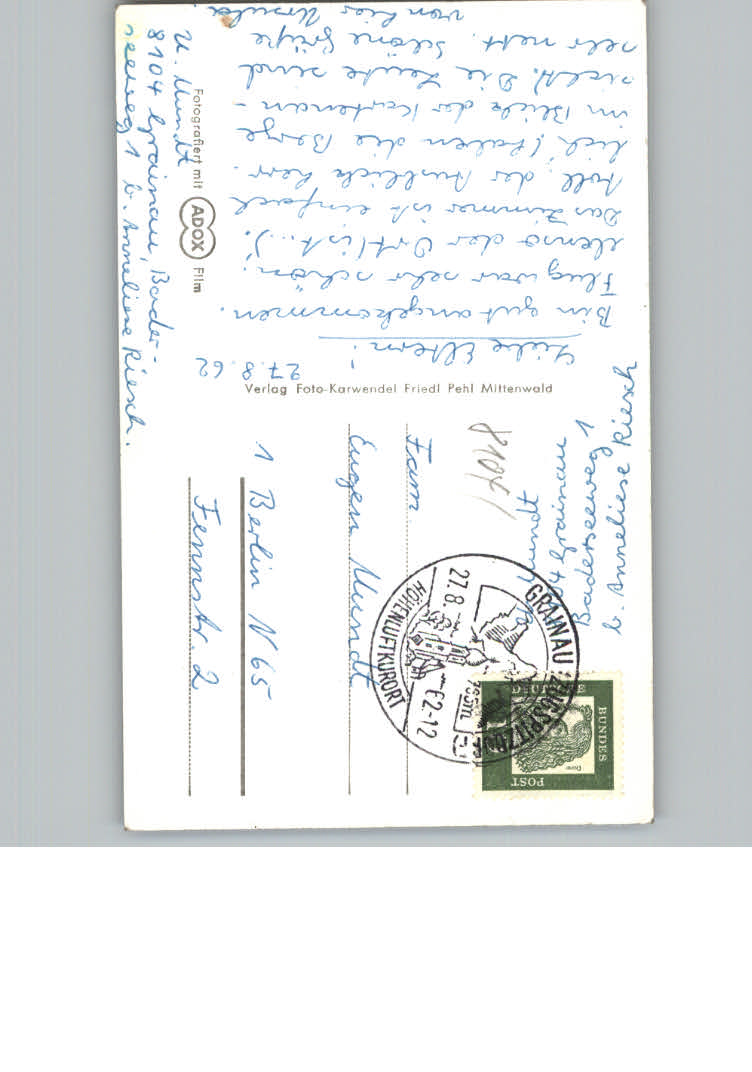 27.8.62
Liebe Eltern!
Bin gut angekommen.
Flug war sehr schön.
(wenn der Ort ist...).
Das Zimmer ist einfach
toll, der Ausblick herr-
lich! (haben die Berge
im Blick der Karten an-
sicht). Die Leute sind
sehr nett. Schöne Grüße
von hier Ursula.
U. Mundt
8104 Grainau, Bader-
seeweg 1 b. Anneliese Riesch.
Fotografiert mit ADOX Film
Verlag Foto-Karwendel Friedl Pehl Mittenwald
8104/
U. Mundt
8104 Grainau
Baderseeweg 1
b. Anneliese Riesch
Fam.
Eugen Mundt
1 Berlin N 65
Fennstr. 2
GRAINAU (ZUGSPITZDORF)
27.8.62-12
HÖHENLUFTKURORT
DEUTSCHE
BUNDES
POST